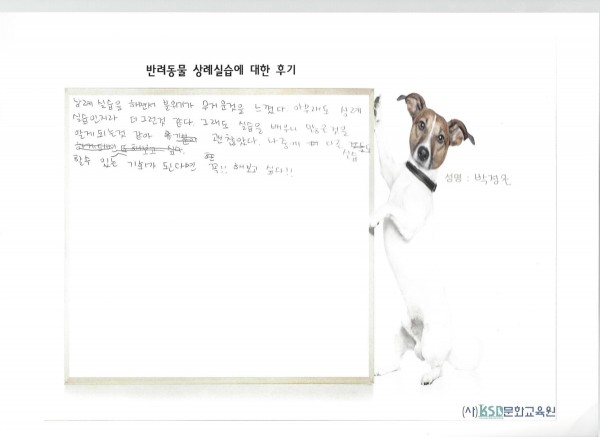 반려동물 상례실습에 대한 후기
상례 실습을 하면서 분위기가 무거운것을 느꼈다 아무래도 상례
실습인지라 더 그런것 같다. 그래도 실습을 배우니 많은것을
알게되는것 같아 괜찮았다. 나중에 또 다른
실습
할수 있는 기회가 된다면 꼭!! 해보고 싶다!!
성명 :
(사)KSD문화교육원